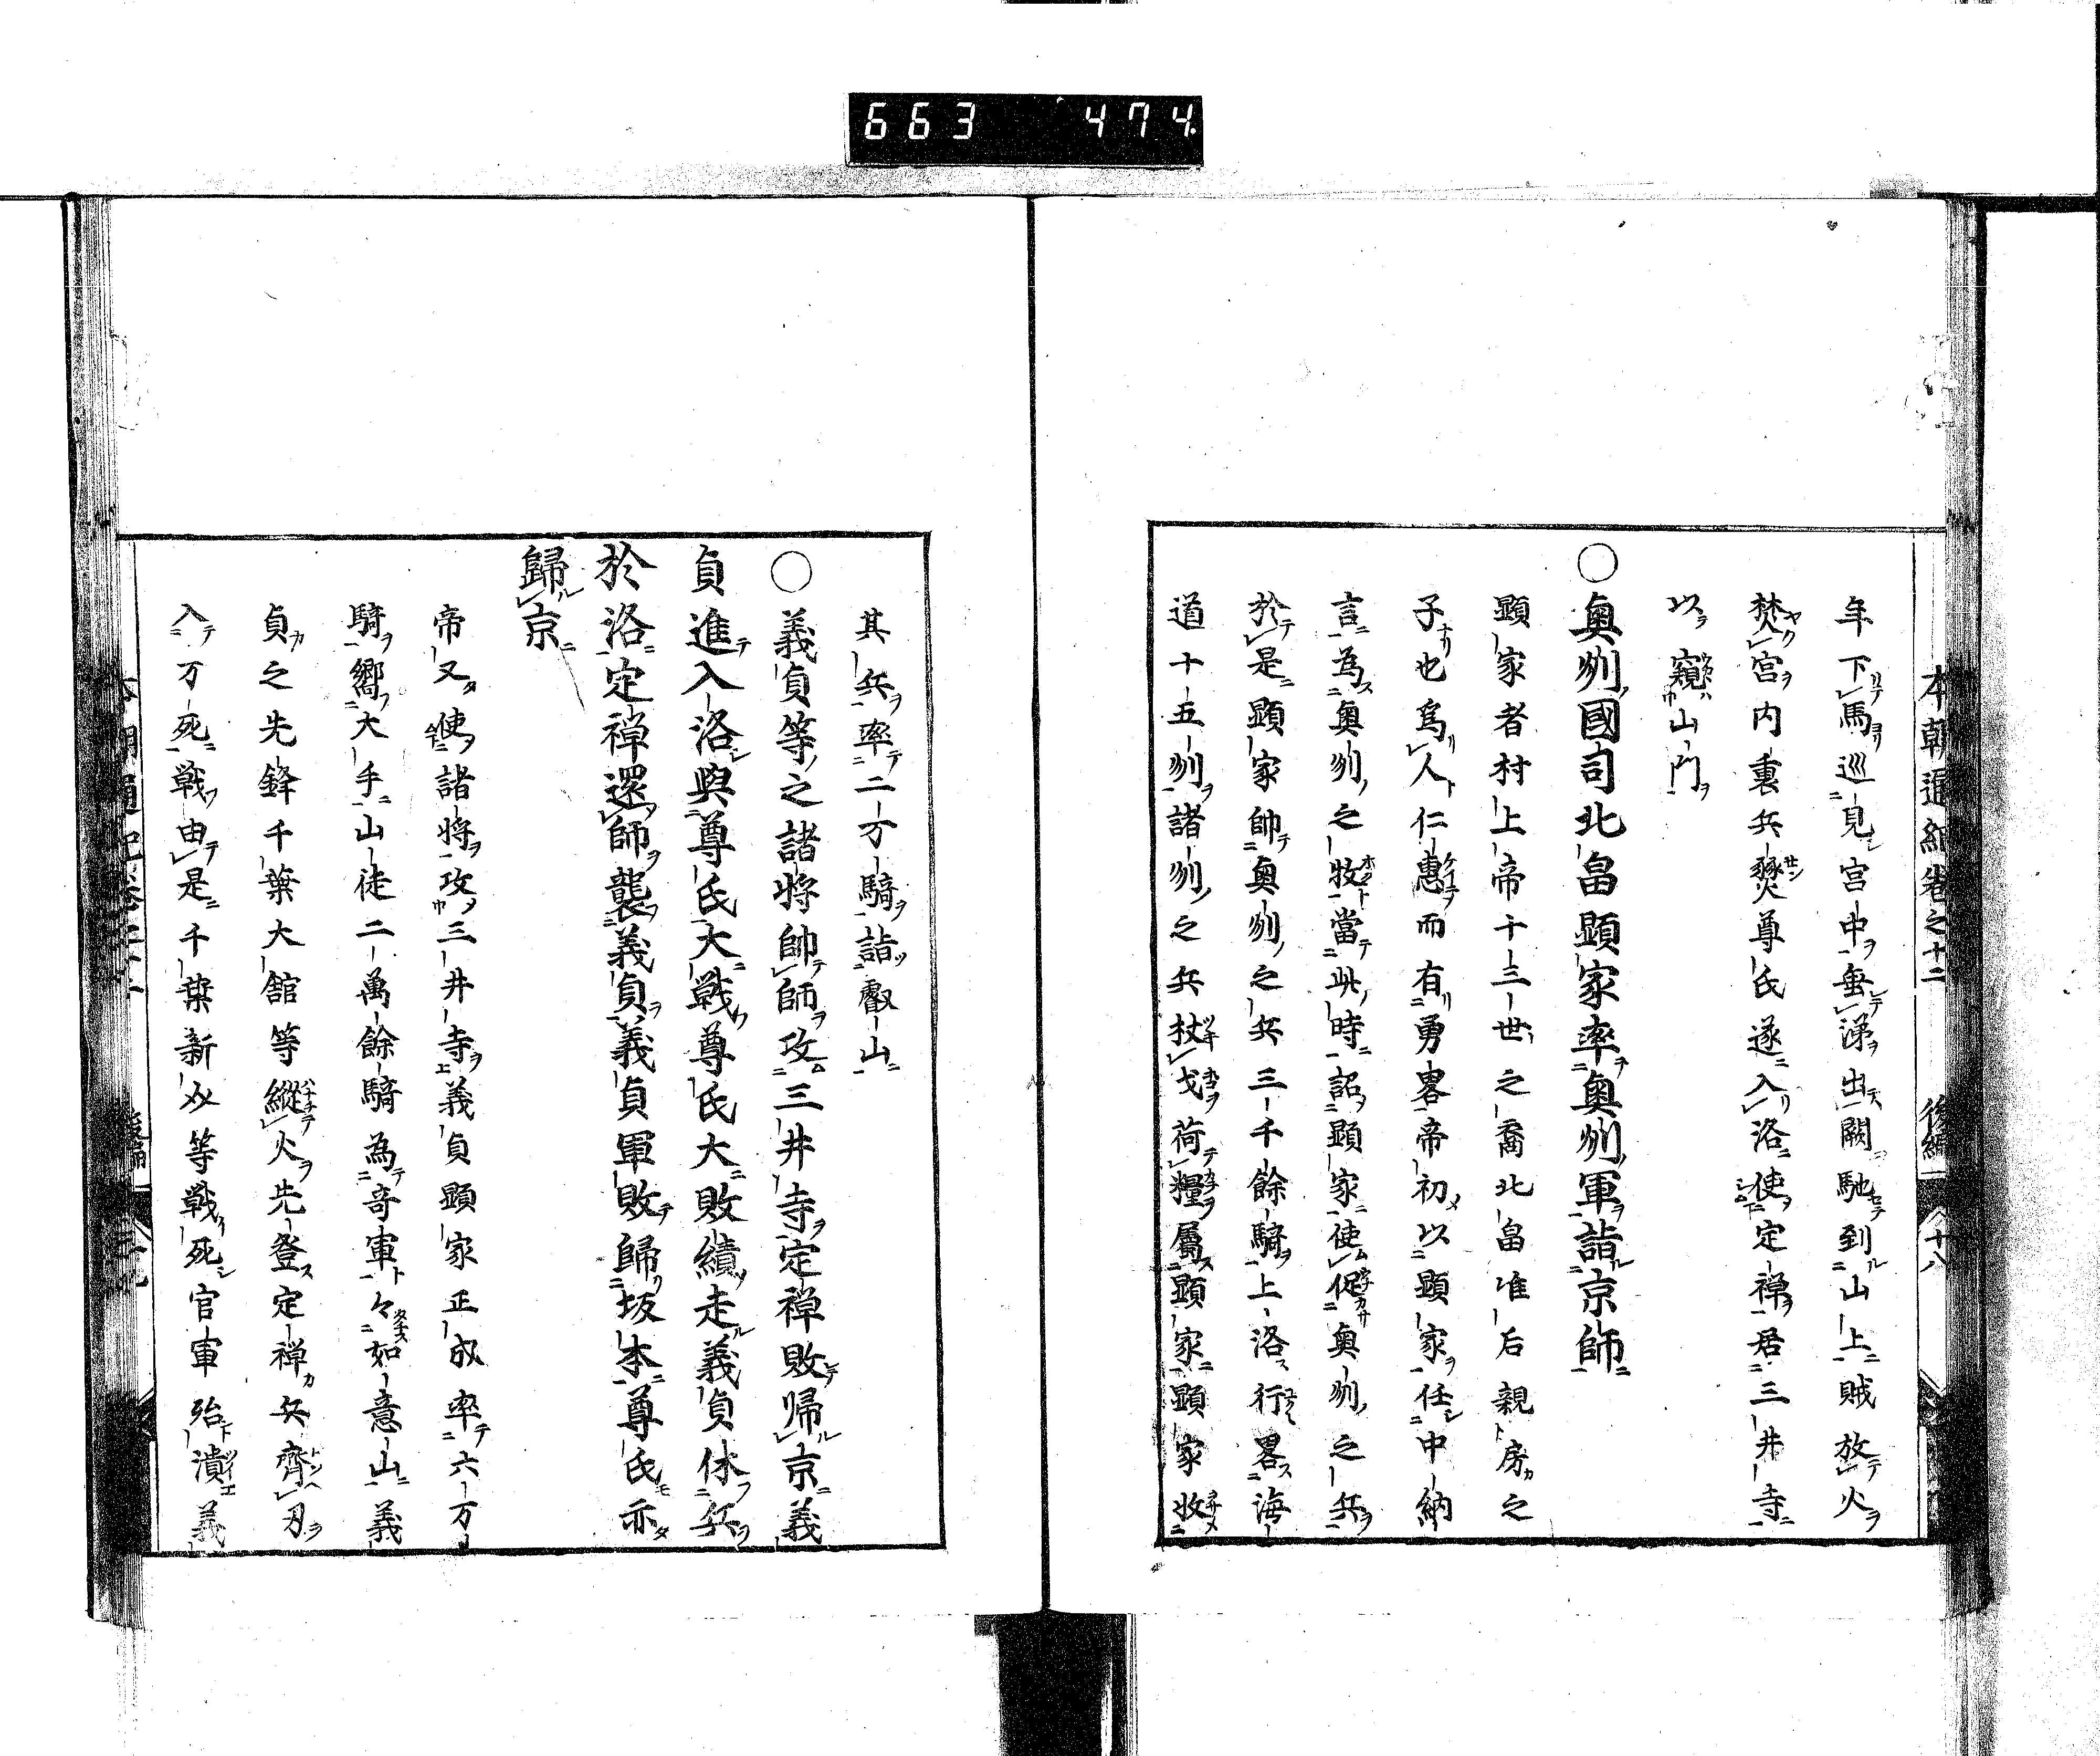 663 474
本朝通紀卷之十二 後編 十八
年下馬巡見宮中垂涕出闕馳到山上賊放火
焚宮内裏兵燹尊氏遂入洛使定禅居三井寺
以窺山門
○奥州國司北畠顕家率奥州軍詣京師
顕家者村上帝十三世之裔北畠准后親房之
子也為人仁惠而有勇畧帝初以顕家任中納
言為奥州之牧當此時詔顕家使促奥州之兵
於是顕家帥奥州之兵三千餘騎上洛行畧海
道十五州諸州之兵杖戈荷糧屬顕家顕家收
其兵率二万騎詣叡山
○義貞等之諸将帥師攻三井寺定禅敗帰京義
貞進入洛與尊氏大戦尊氏大敗績走義貞休兵
於洛定禅還師襲義貞義貞軍敗歸坂本尊氏亦
歸京
帝又使諸将攻三井寺義貞顕家正成率六万
騎嚮大手山徒二萬餘騎為奇軍々如意山義
貞之先鋒千葉大舘等縱火先登定禅兵齊刃
入万死戦由是千葉新介等戦死官軍殆潰義